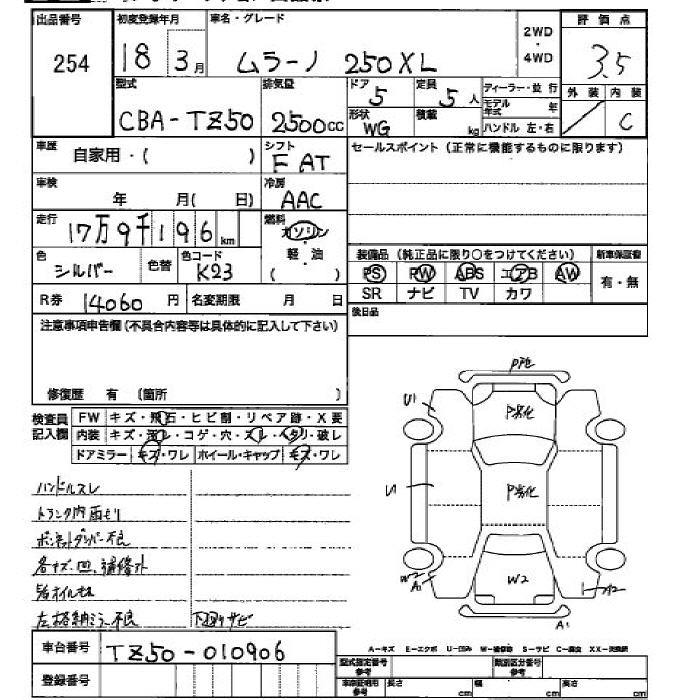 出品番号 初度登録年月 車名・グレード 2WD・4WD 評価点
254 18年 3月 ムラーノ 250XL 3.5
型式 排気量 ドア 定員 ディーラー・並行 外装 内装
CBA-TZ50 2500cc 5 5人 モデル年式 年 C
形状 WG 積載 kg ハンドル 左・右
車歴 自家用・( ) シフト FAT セールスポイント(正常に機能するものに限ります)
車検 年 月( 日) 冷房 AAC
走行 17万9千196km 燃料 ガソリン・軽油
( )
色 シルバー 色替 色コード K23 装備品(純正品に限り○をつけてください) 新車保証書
PS PW ABS エアB AW 有・無
R券 14060円 名変期限 月 日 SR ナビ TV カワ
注意事項申告欄(不具合内容等は具体的に記入して下さい) 後日品
修復歴 有 (箇所 )
検査員記入欄 FW キズ・飛石・ヒビ割・リペア跡・X要
内装 キズ・汚レ・コゲ・穴・スレ・ヘタリ・破レ
ドアミラー キズ・ワレ ホイール・キャップ キズ・ワレ
ハンドルスレ
トランク内
ボンネットダンパー不良
各キズ、凹、補修外
左格納ミラー不良 下廻りサビ
U1
P劣化
P劣化
W2
W2
A1
A2
A1
車台番号 TZ50-010906
登録番号
A-キズ E-エクボ U-凹み W-補修跡 S-サビ C-腐食 XX-交換済
型式指定番号 参考 類別区分番号 参考
車庫証明用 参考 長さ cm 幅 cm 高さ cm